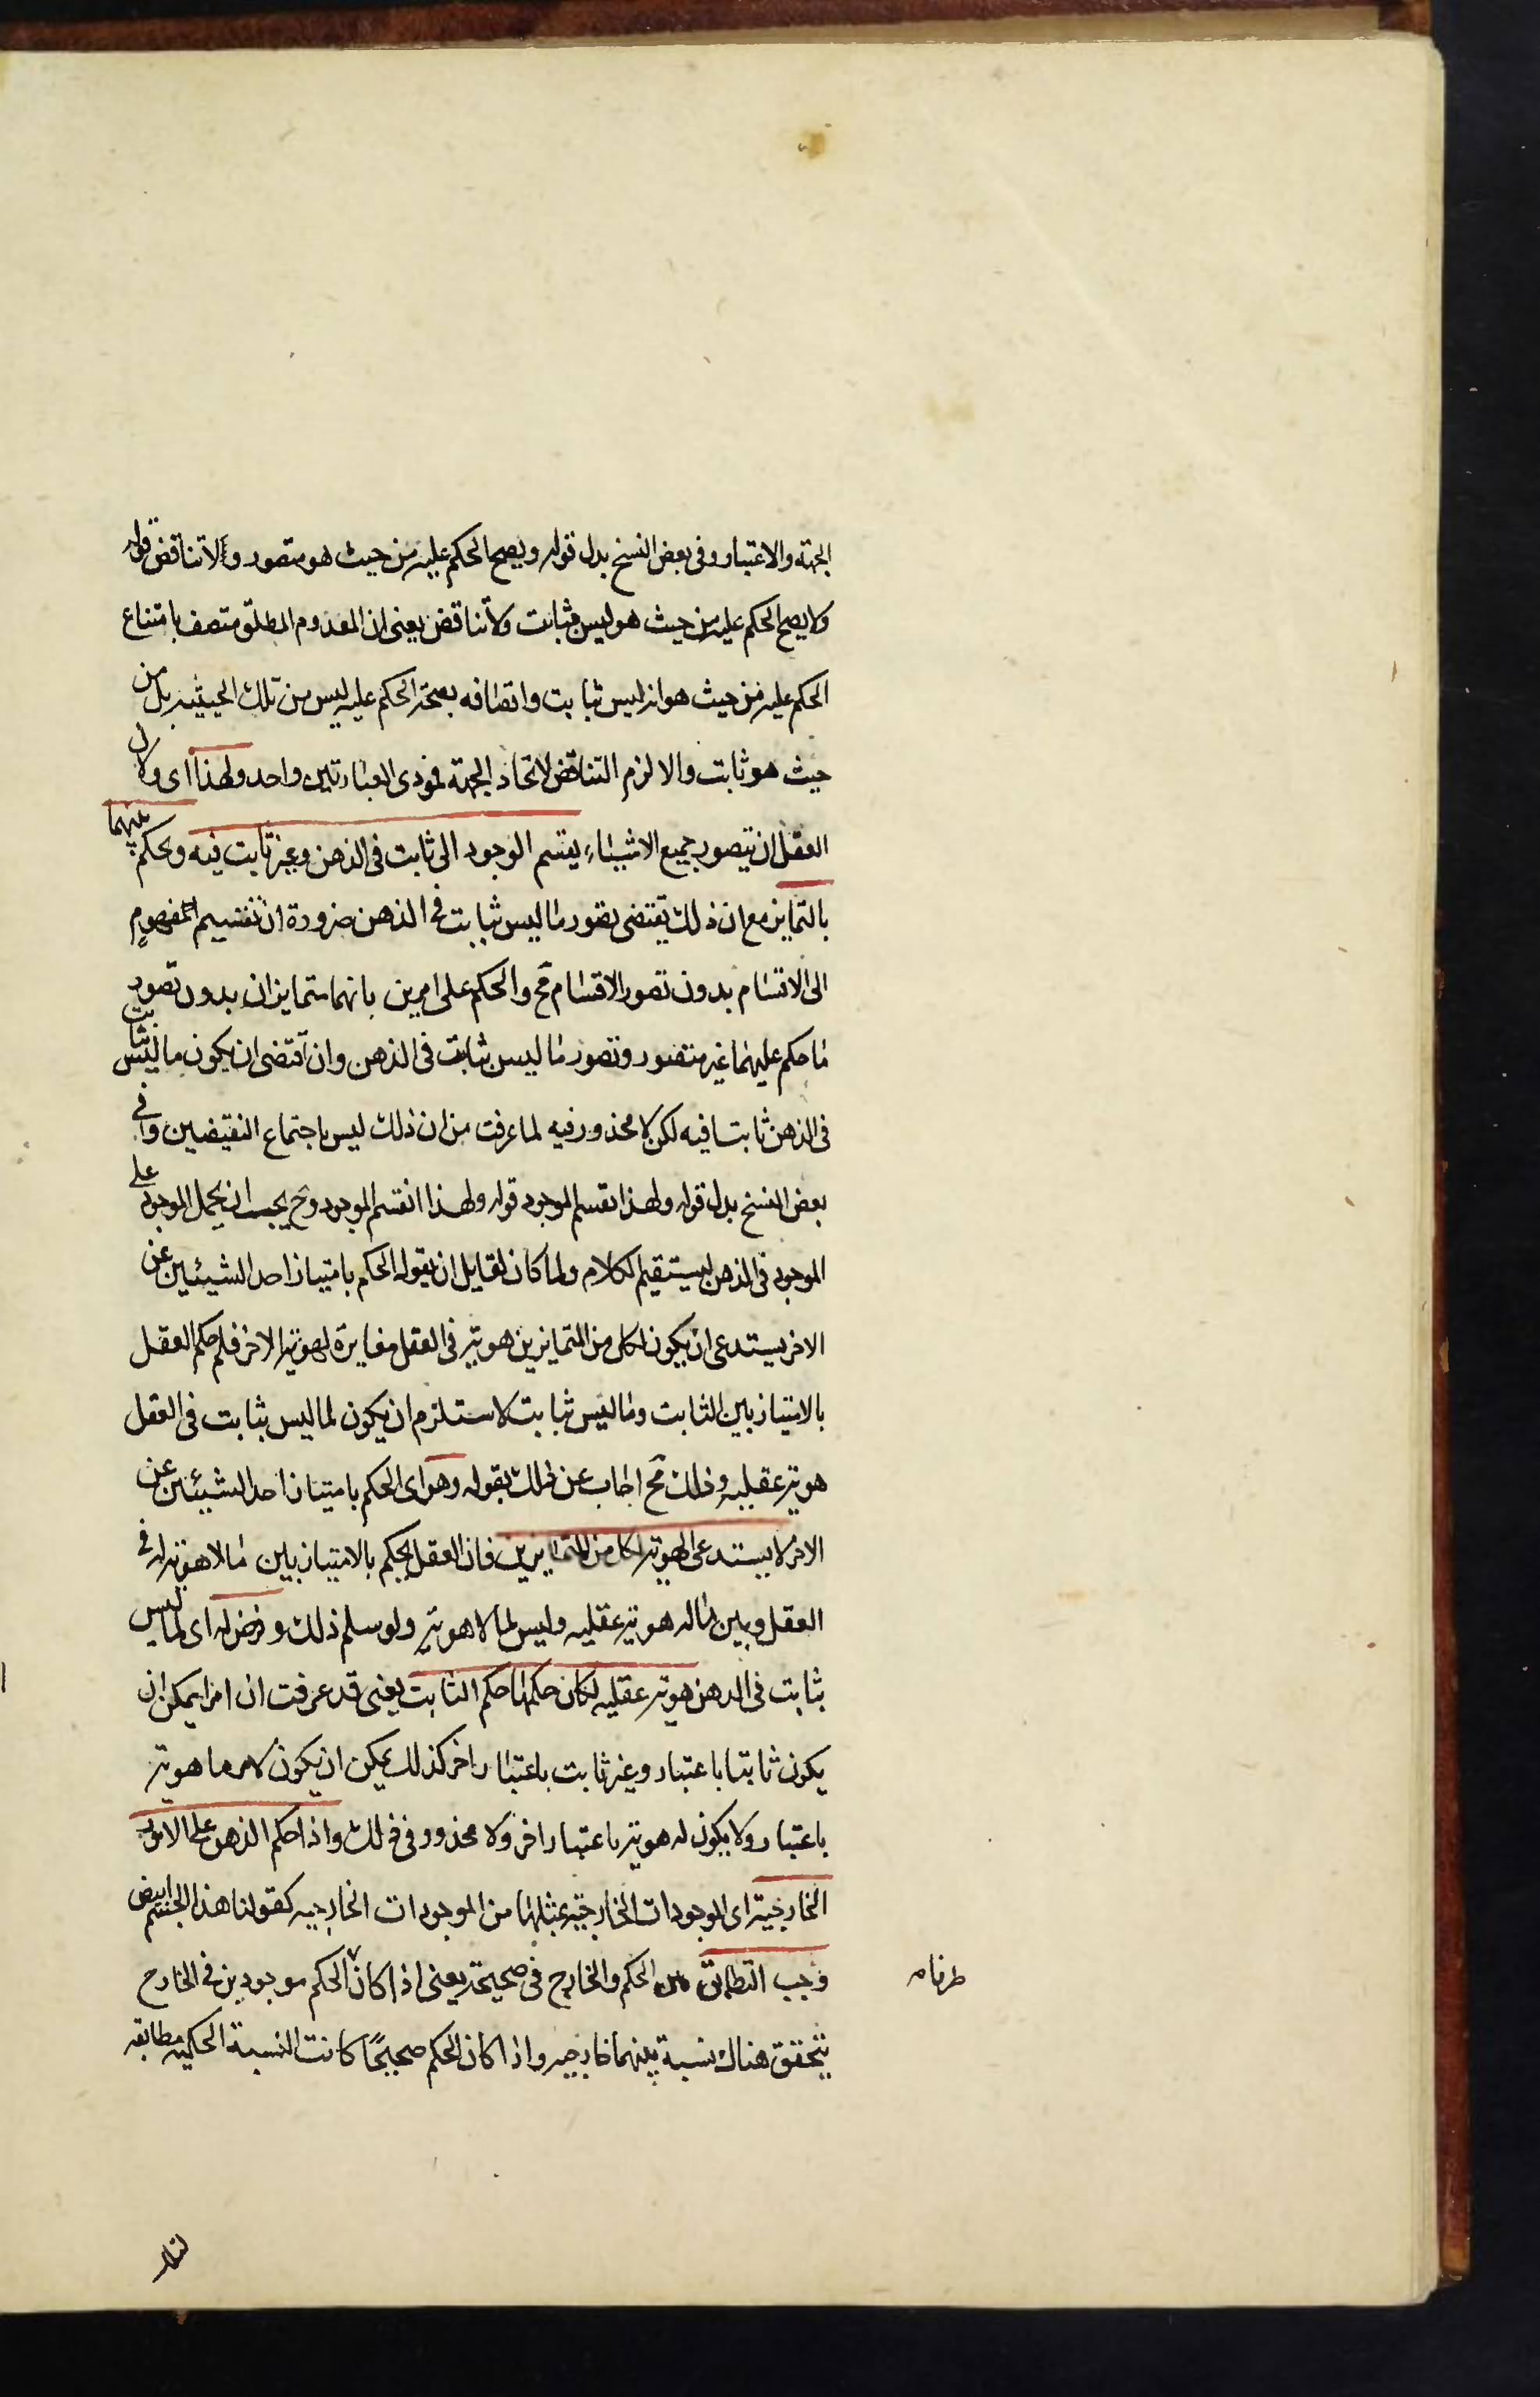 الجهة والاعتبار وفى بعض النسخ بدل قوله ويصح الحكم عليه من حيث هو متصور ولا تناقض قوله
ولا يصح الحكم عليه من حيث هو ليس بثابت ولا تناقض يعنى ان المعدوم المطلق متصف بامتناع
الحكم عليه من حيث هو انه ليس بثابت واتصافه بصحة الحكم عليه ليس من تلك الحيثيه بل من
حيث هو ثابت والا لزم التناقض لاتحاد الجهة فمودى العبارتين واحد ولهذا اى ولان
العقل ان يتصور جميع الاشياء يقسم الوجود الى ثابت فى الذهن وغير ثابت فيه ويحكم عليهما
بالتمايز مع ان ذلك يقتضى تصور ما ليس بثابت فى الذهن ضرورة ان تقسيم المفهوم
الى الاقسام بدون تصور الاقسام مح والحكم على امرين بانهما متمايزان بدون تصور
ما حكم عليهما غير متصور وتصور ما ليس بثابت فى الذهن وان اقتضى ان يكون ما ليس بثابت
فى الذهن ثابتا فيه لكن لا محذور فيه لما عرفت من ان ذلك ليس باجتماع النقيضين وفى
بعض النسخ بدل قوله ولهذا نقسم الموجود قوله ولهذا انقسم الموجود وح يجب ان يحمل الموجود على
الموجود فى الذهن ليستقيم الكلام ولما كان لقايل ان يقول الحكم بامتياز احد الشيئين عن
الاخر يستدعى ان يكون لكل من المتمايزين هوية فى العقل مغايرة لهوية الاخر فلو حكم العقل
بالامتياز بين الثابت وما ليس بثابت لاستلزم ان يكون لما ليس بثابت فى العقل
هوية عقليه وذلك مح اجاب عن ذلك بقوله وهو اى الحكم بامتياز احد الشيئين عن
الاخر لا يستدعى الهوية لكل من المتمايزين فان العقل يحكم بالامتياز بين ما لا هوية له فى
العقل وبين ما له هوية عقليه وليس لما لا هوية ولو سلم ذلك وفرض له اى لما ليس
بثابت فى الذهن هوية عقليه لكان حكمها حكم الثابت يعنى قد عرفت ان امرا يمكن ان
يكون ثابتا باعتبار وغير ثابت باعتبار اخر كذلك يمكن ان يكون لامر ما هوية
باعتبار ولا يكون له هوية باعتبار اخر ولا محذور فى ذلك واذا حكم الذهن على الامور
الخارجية اى الموجودات الخارجية بمثلها من الموجودات الخارجيه كقولنا هذا الجسم ابيض
وجب التطابق بين الحكم والخارج فى صحيحه يعنى اذا كان الحكم موجودين فى الخارج
طرفاه
يتحقق هناك نسبة بينهما خارجيه واذا كان الحكم صحيحًا كانت النسبة الحكميه مطابقه